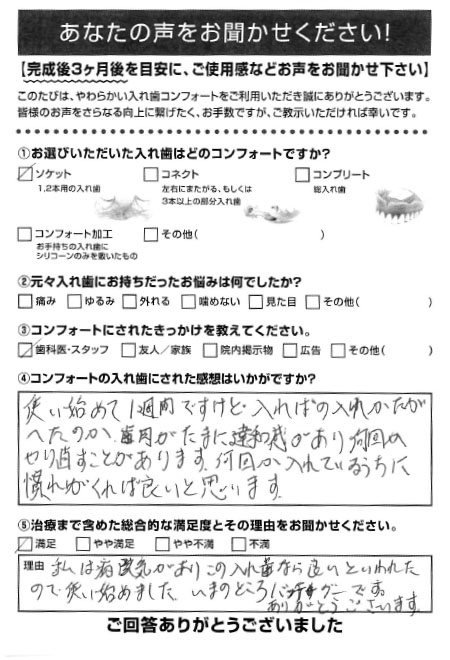 あなたの声をお聞かせください!
【完成後3ヶ月後を目安に、ご使用感などお声をお聞かせ下さい】
このたびは、やわらかい入れ歯コンフォートをご利用いただき誠にありがとうございます。
皆様のお声をさらなる向上に繋げたく、お手数ですが、ご教示いただければ幸いです。
①お選びいただいた入れ歯はどのコンフォートですか?
ソケット コネクト コンプリート
1,2本用の入れ歯 左右にまたがる、もしくは 総入れ歯
3本以上の部分入れ歯
コンフォート加工 その他( )
お手持ちの入れ歯に
シリコーンのみを敷いたもの
②元々入れ歯にお持ちだったお悩みは何でしたか?
痛み ゆるみ 外れる 噛めない 見た目 その他( )
③コンフォートにされたきっかけを教えてください。
歯科医・スタッフ 友人/家族 院内掲示物 広告 その他( )
④コンフォートの入れ歯にされた感想はいかがですか?
使い始めて1週間ですけど入ればの入れかたが
へたのか、歯円がたまに違和感があり何回か
やり直すことがあります。何回か入れているうちに
慣れがくれば良いと思います。
⑤治療まで含めた総合的な満足度とその理由をお聞かせください。
満足 やや満足 やや不満 不満
理由 私は病気がありこの入れ歯なら良いといわれた
ので使い始めました いまのところバッチグーです。
ありがとうございます。
ご回答ありがとうございました